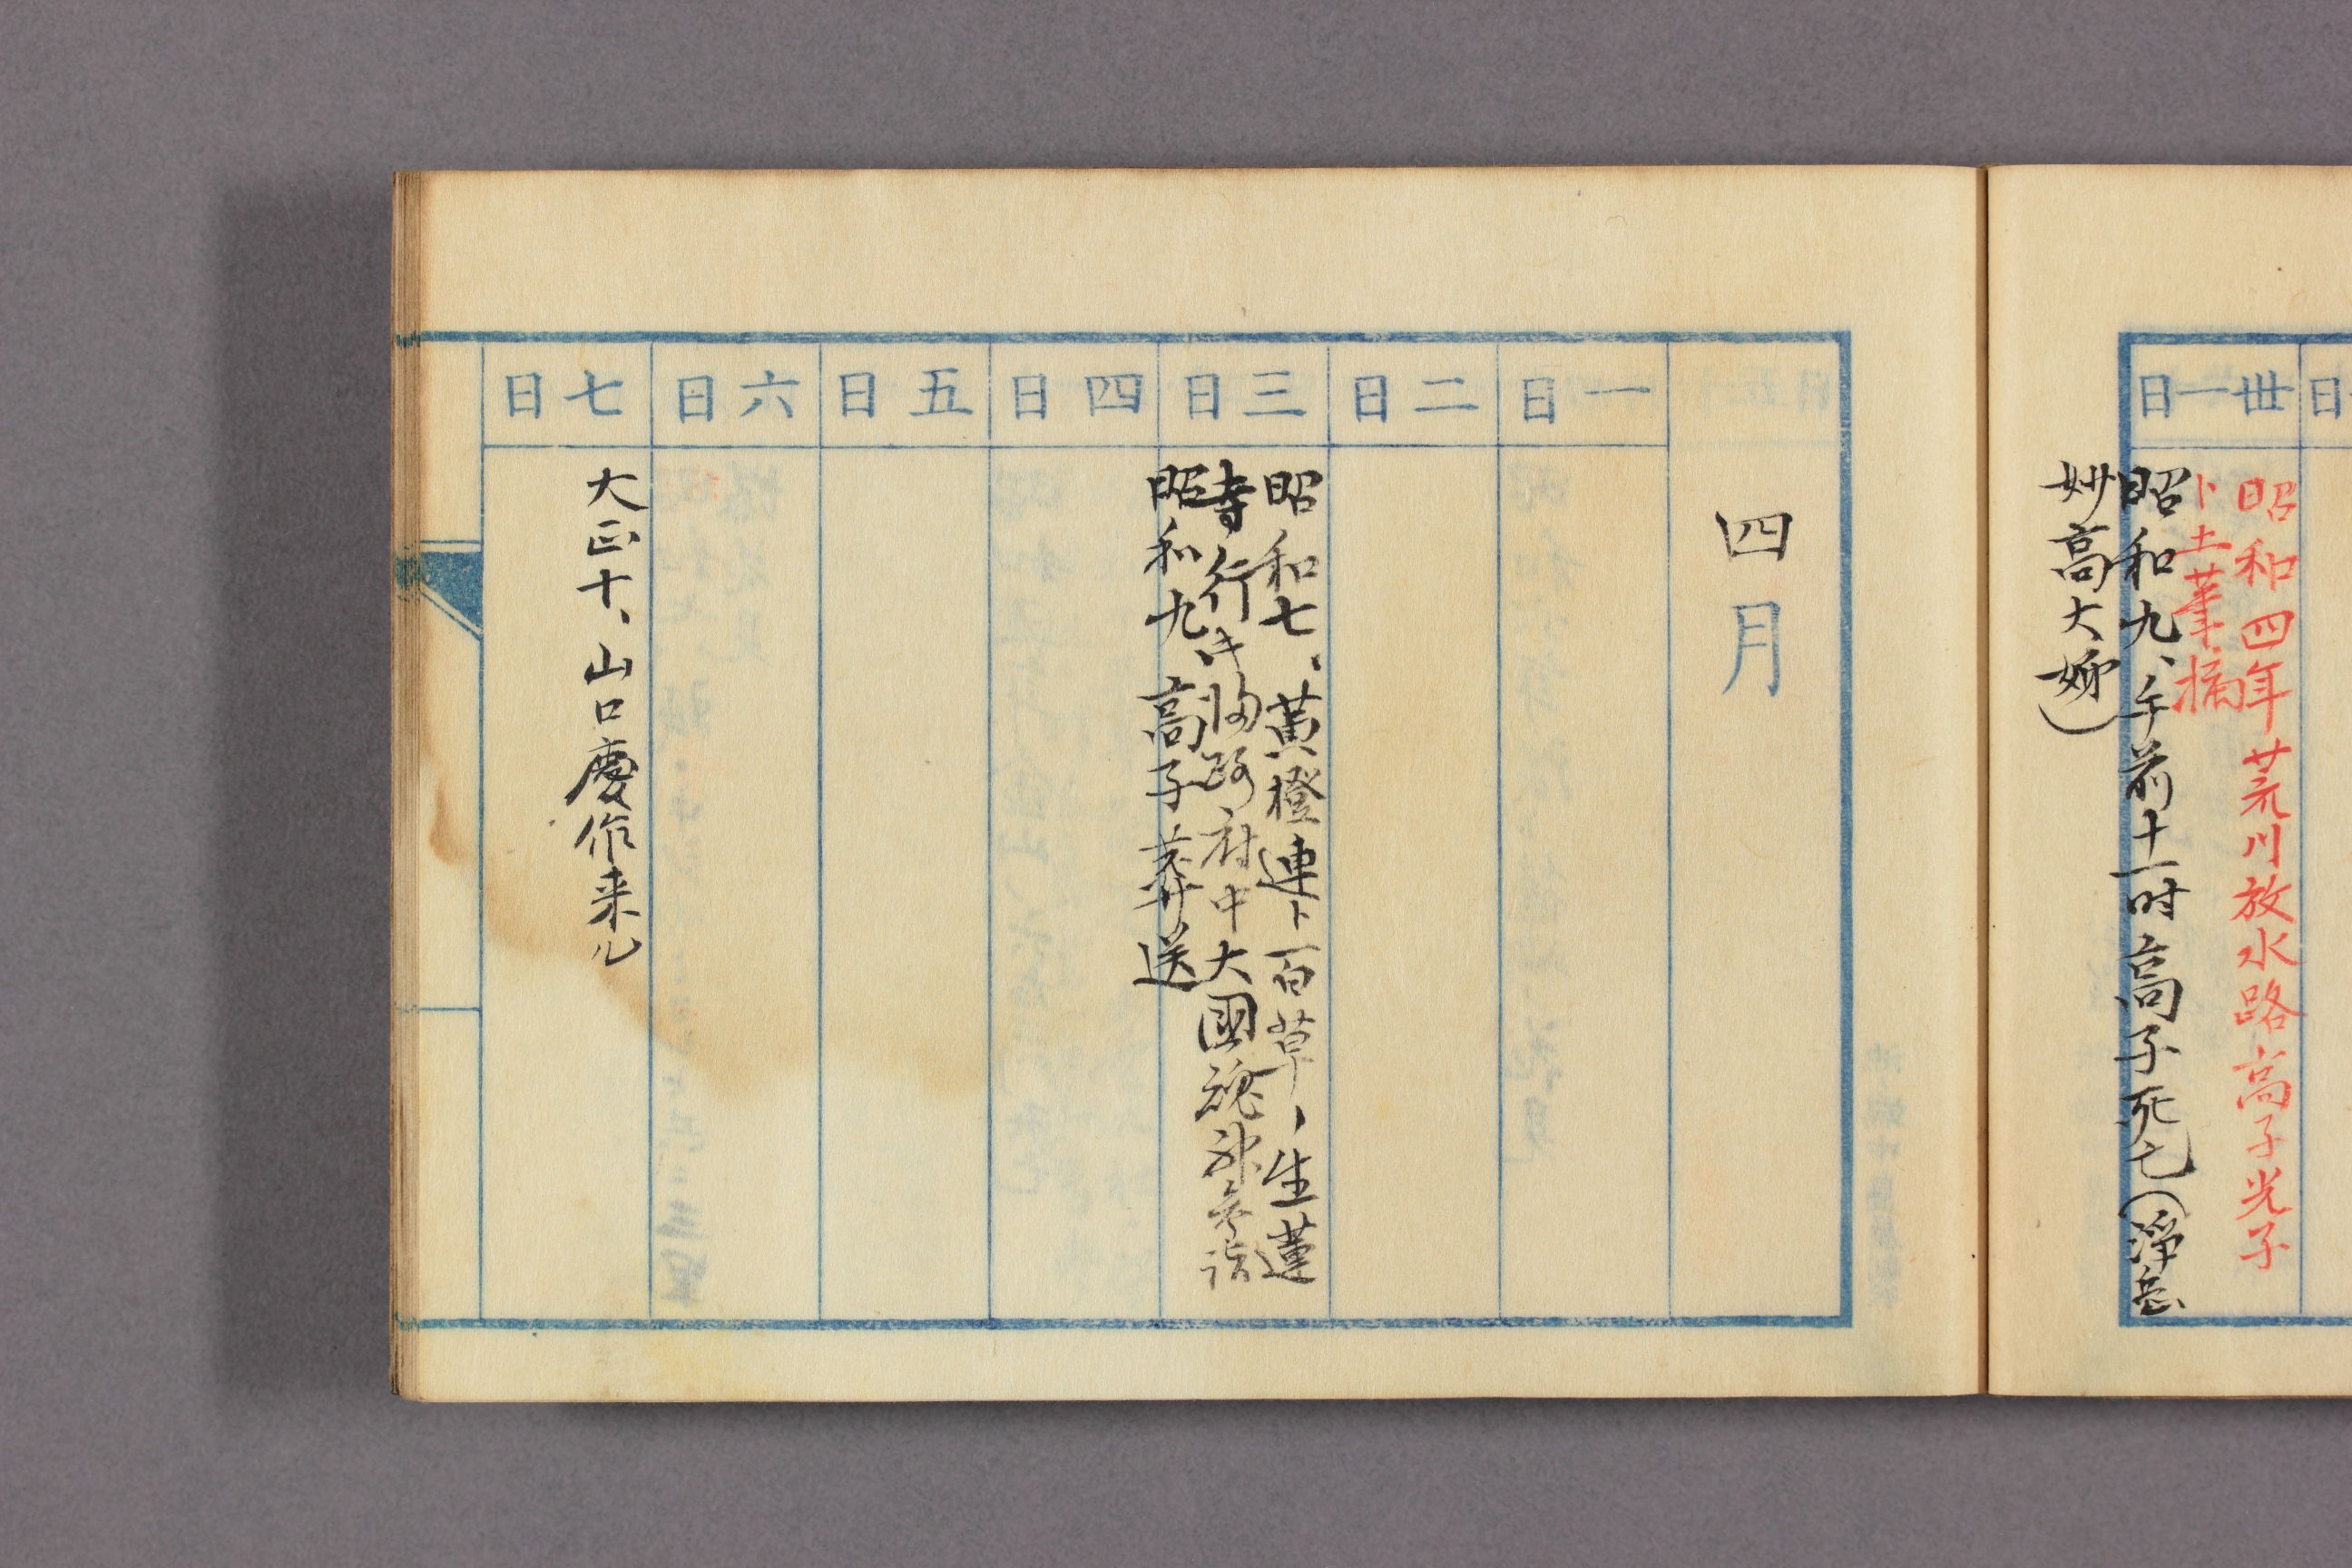 日
卅一日
昭和四年荒川放水路高子光子
ト土筆摘
昭和九、午前十一时高子死亡(淨岳
妙高大姉)
四月
一日
二日
三日
昭和七、黄橙連ト百草ノ生蓮
寺行き帰路府中大國魂神参詣
昭和九 高子葬送
四日
五日
六日
七日
大正十、山口慶作来ル